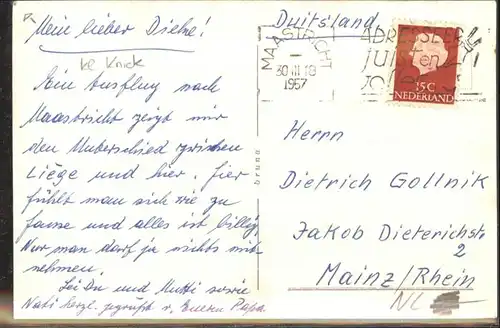 Mein lieber Dicke!
Ein Ausflug nach
Maastricht zeigt mir
den Unterschied zwischen
Liège und hier. Hier
fühlt man sich wie zu
Hause und alles ist billig.
Nur man darf ja nichts mit-
nehmen.
Sei Du und Mutti sowie
herzl. gegrüßt v. Eurem Papa.
Duitsland
MAASTRICHT
30 III 18
1957
15C
NEDERLAND
Herrn
Dietrich Gollnik
Jakob Dieterichstr
2
Mainz/Rhein
NL